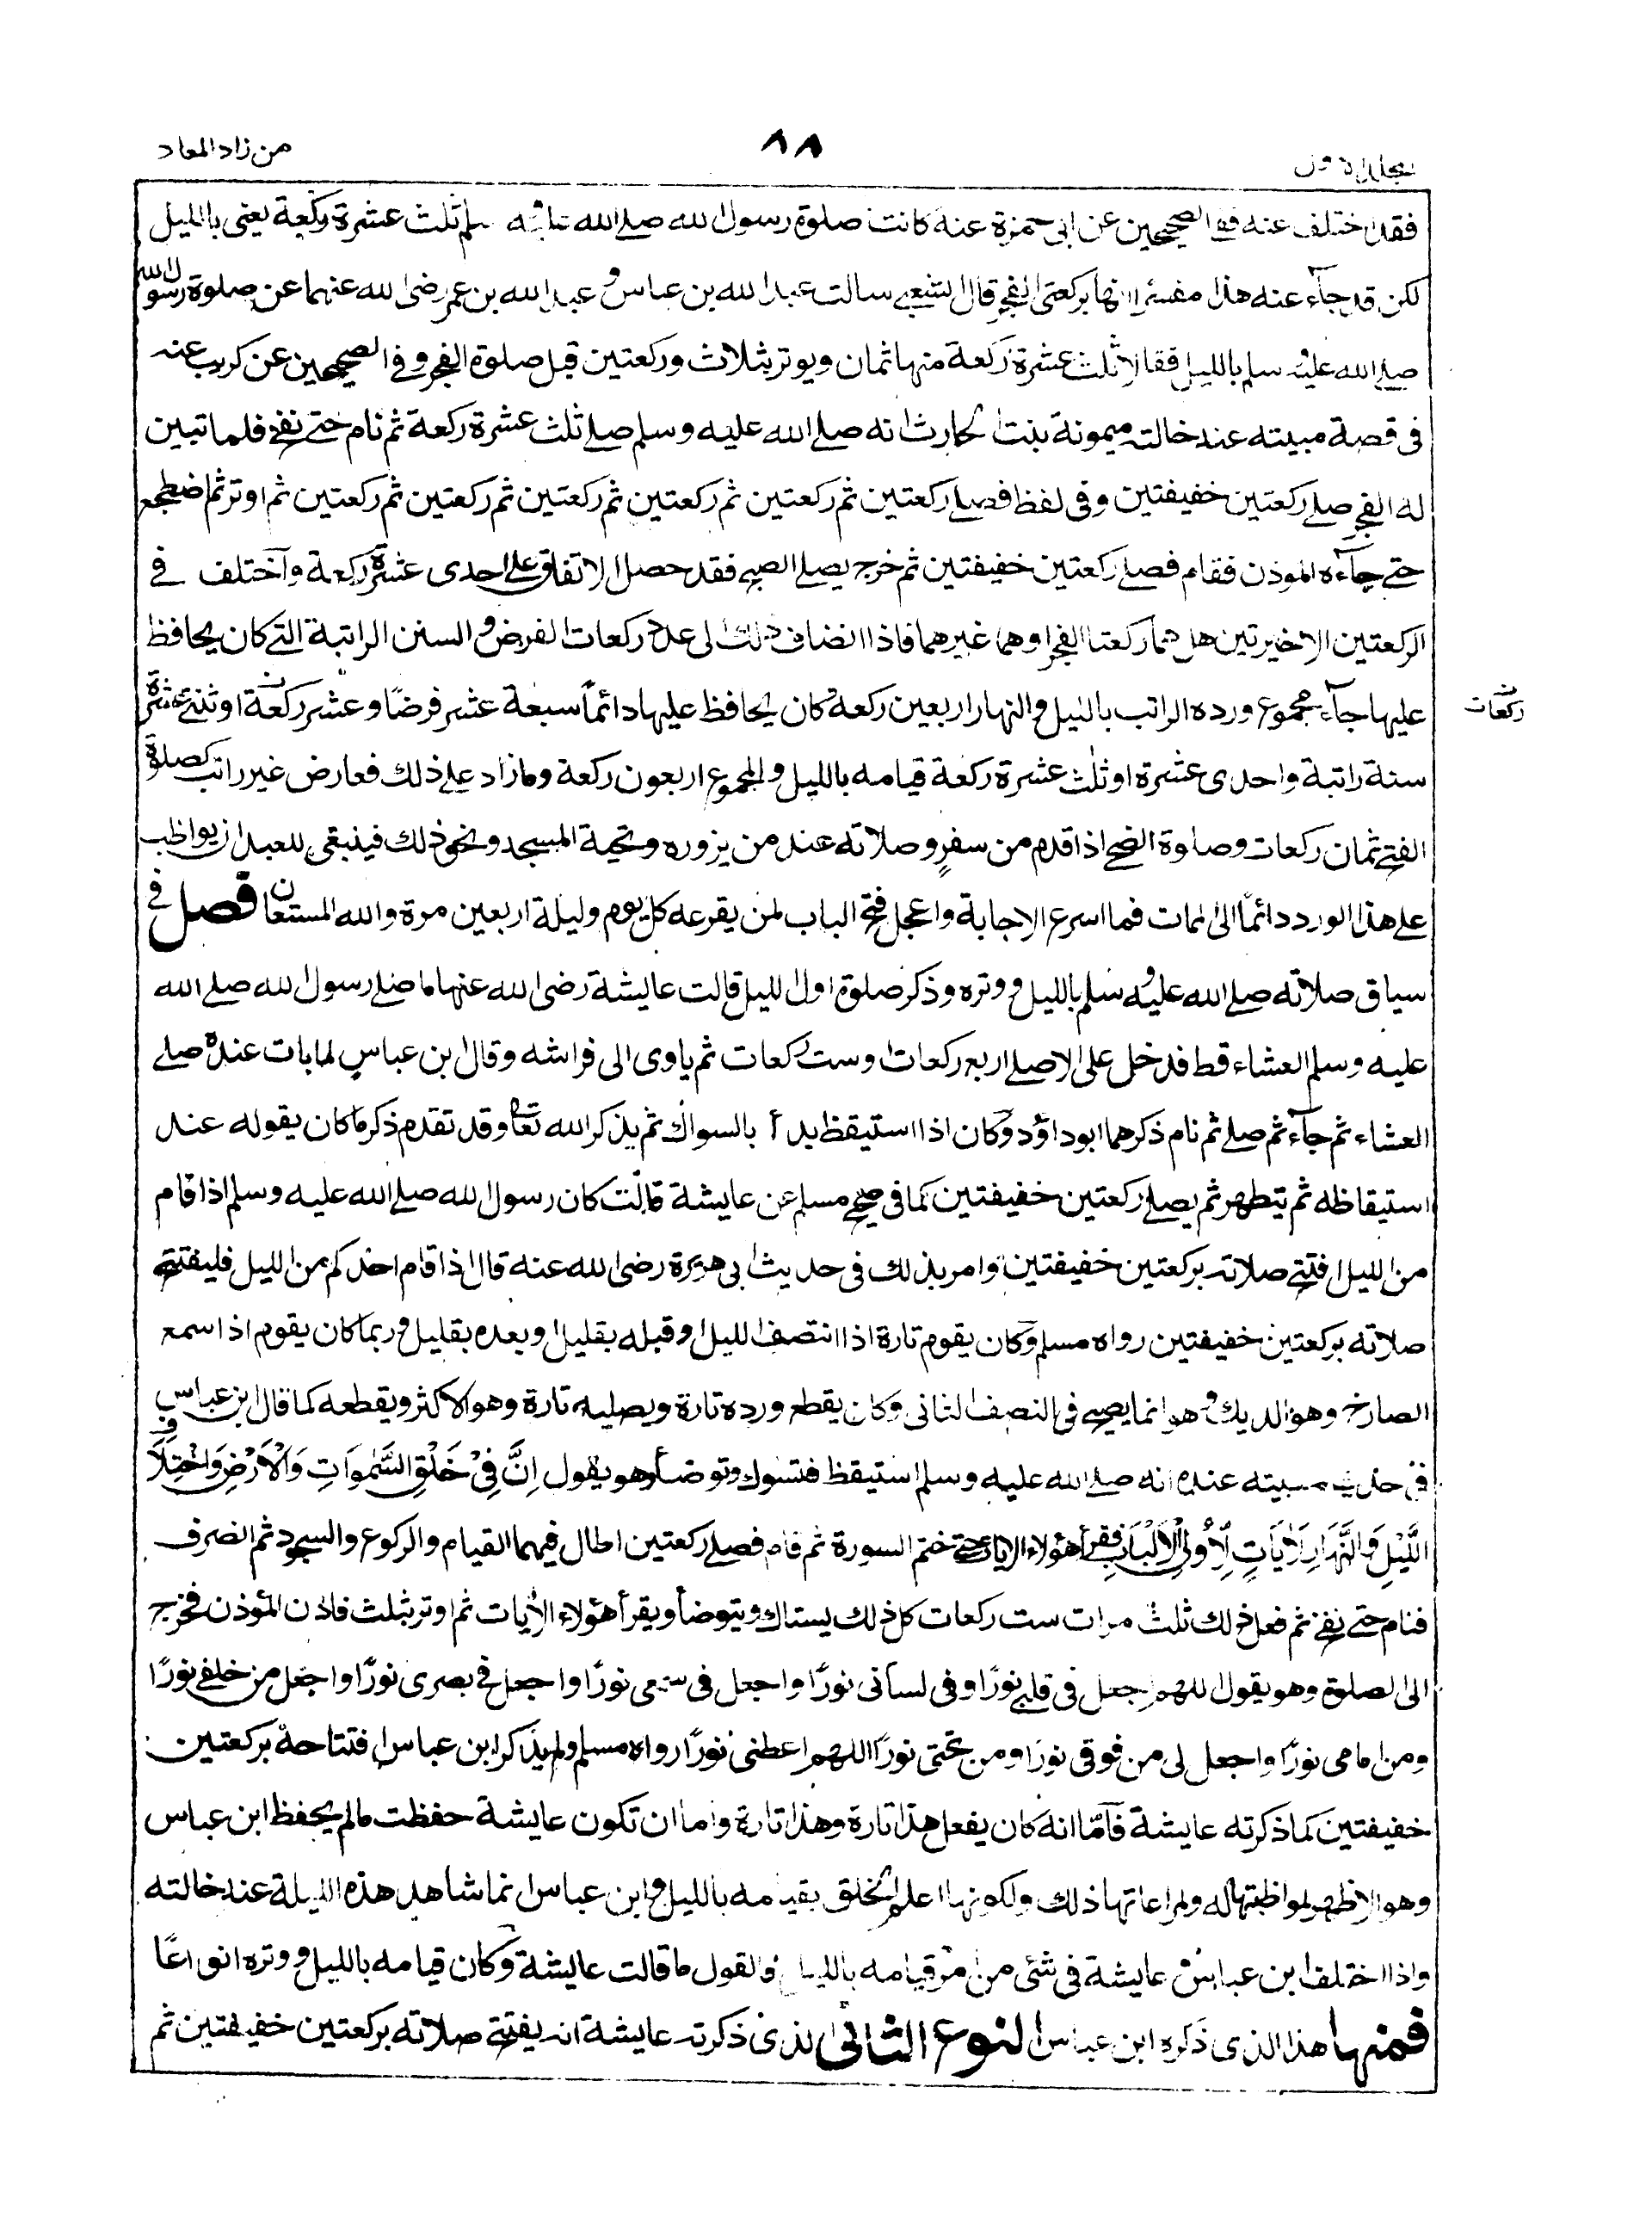 المجلد الاول
٨٨
من زاد المعاد
فقد اختلف عنه ففي الصحيحين عن ابي حمزة عنه كانت صلوة رسول الله صلے الله عليه وسلم ثلث عشرة ركعة يعني بالليل
لكن قد جآء عنه هذا مفسرا انها بركعتي الفجر قال الشعبے سالت عبد الله بن عباس و عبد الله بن عمر رضى الله عنهما عن صلوة رسول الله
صلے الله عليه وسلم بالليل فقالا ثلث عشرة ركعة منها ثمان ويوتر بثلاث وركعتين قبل صلوة الفجر و فى الصحيحين عن كريب عنه
فى قصة مبيته عند خالته ميمونة بنت الحارث انه صلے الله عليه وسلم صلے ثلث عشرة ركعة ثم نام حتے نفخ فلما تبين
له الفجر صلے ركعتين خفيفتين وفى لفظ فصلے ركعتين ثم ركعتين ثم ركعتين ثم ركعتين ثم ركعتين ثم ركعتين ثم اوتر ثم اضطجع
حتے جآءه الموذن فقام فصلے ركعتين خفيفتين ثم خرج يصلے الصبح فقد حصل الاتفاق علے احدى عشرة ركعة وآختلف فے
الركعتين الاخيرتين هل هما ركعتا الفجر او هما غيرهما فاذا انضاف ذلك الى عدد ركعات الفرض و السنن الراتبة التے كان يحافظ
عليها جآء مجموع ورده الراتب بالليل والنهار اربعين ركعة كان يحافظ عليها دائماً سبعة عشر فرضًا وعشر ركعة او ثنتے عشرة
ركعات
سنة راتبة واحدى عشرة او ثلث عشرة ركعة قيامه بالليل والمجموع اربعون ركعة وما زاد علے ذلك فعارض غير راتب كصلوة
الفتح ثمان ركعات وصلوة الضحے اذا قدم من سفرٍ وصلاته عند من يزوره وتحية المسجد ونحو ذلك فينبغى للعبد ان يواظب
علے هذا الورد دائماً الى الممات فما اسرع الاجابة واعجل فتح الباب لمن يقرعه كل يوم وليلة اربعين مرة والله المستعان فصل فے
سياق صلاته صلے الله عليه وسلم بالليل و وتره وذكر صلوة اول الليل قالت عايشة رضى الله عنها ما صلے رسول الله صلے الله
عليه وسلم العشاء قط فدخل على الا صلے اربع ركعات او ست ركعات ثم ياوى الى فراشه وقال ابن عباس لما بات عنده صلے
العشاء ثم جآء ثم صلے ثم نام ذكرهما ابو داؤد وكان اذا استيقظ بدأ بالسواك ثم يذكر الله تعا وقد تقدم ذكر ما كان يقوله عند
استيقاظه ثم يتطهر ثم يصلے ركعتين خفيفتين كما فى صحيح مسلم عن عايشة قالت كان رسول الله صلے الله عليه وسلم اذا قام
من الليل افتتح صلاته بركعتين خفيفتين وامر بذلك فى حديث ابى هريرة رضى الله عنه قال اذا قام احدكم من الليل فليفتتح
صلاته بركعتين خفيفتين رواه مسلم وكان يقوم تارة اذا انتصف الليل او قبله بقليل او بعده بقليل وربما كان يقوم اذا سمع
الصارخ وهو الديك و هو انما يصيح فى النصف الثانى وكان يقطع ورده تارة ويصليه تارة وهو الاكثر ويقطعه كما قال ابن عباس
فى حديث مبيته عنده انه صلے الله عليه وسلم استيقظ فتسوك وتوضأ وهو يقول اِنَّ فِىْ خَلْقِ السَّمٰوَاتِ وَالْاَرْضِ وَاخْتِلَافِ
اللَّيْلِ وَالنَّهَارِ لَاٰيَاتٍ لِّاُولِى الْاَلْبَابِ فقرأ هؤلاء الايات حتے ختم السورة ثم قام فصلے ركعتين اطال فيهما القيام والركوع والسجود ثم انصرف
فنام حتے نفخ ثم فعل ذلك ثلث مرات ست ركعات كل ذلك يستاك ويتوضأ ويقرأ هؤلاء الأيات ثم اوتر بثلث فاذن المؤذن فخرج
الى الصلوة وهو يقول اللهم اجعل فى قلبے نورًا وفى لسانى نورًا واجعل فى سمعى نورًا واجعل فى بصرى نورًا واجعل من خلفے نورًا
ومن امامى نورًا واجعل لى من فوقى نورًا ومن تحتى نورًا اللهم اعطنى نورًا رواه مسلم ولم يذكر ابن عباس افتتاحه بركعتين
خفيفتين كما ذكرته عايشة فآمّا انه كان يفعل هذا تارة وهذا تارة واما ان تكون عايشة حفظت ما لم يحفظ ابن عباس
وهو الاظهر لمواظبتها له ولمراعاتها ذلك ولكونها اعلم الخلق بقيامه بالليل و ابن عباس انما شاهد هذه الليلة عند خالته
واذا اختلف ابن عباس و عايشة فى شئى من امر قيامه بالليل فالقول ما قالت عايشة وكان قيامه بالليل و وتره انواعًا
فمنها هذا الذى ذكره ابن عباس النوع الثانى الذى ذكرته عايشة انه يفتتح صلاته بركعتين خفيفتين ثم